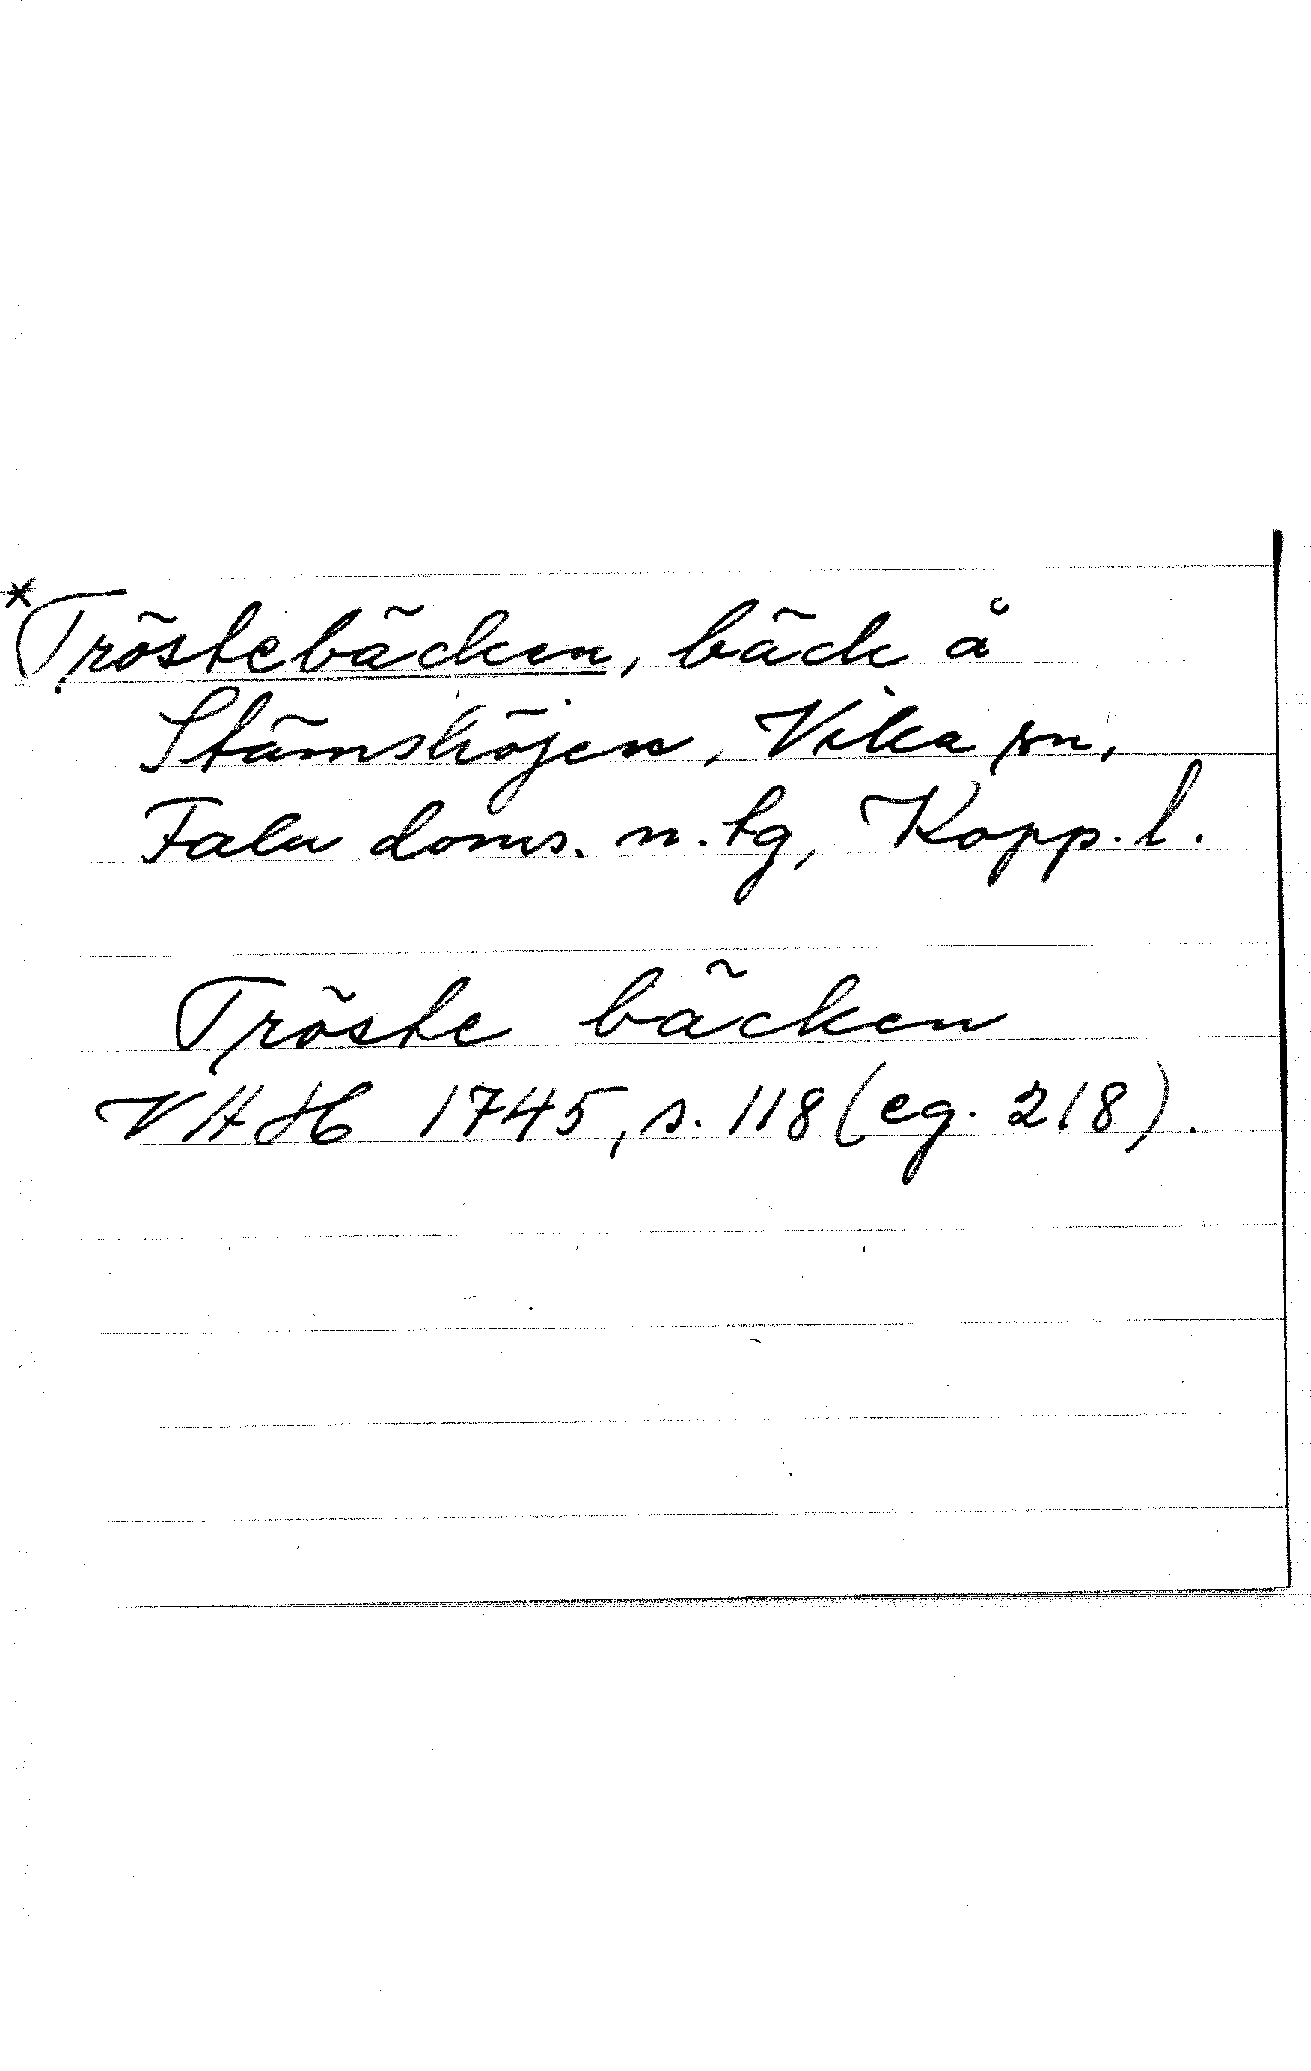 *Tröstebäcken, bäck å
Stämshöjen, Vika sn,
Falu doms. n. tg, Kopp. l.
Tröste bäcken
VAH 1745, s. 118 (eg. 218).